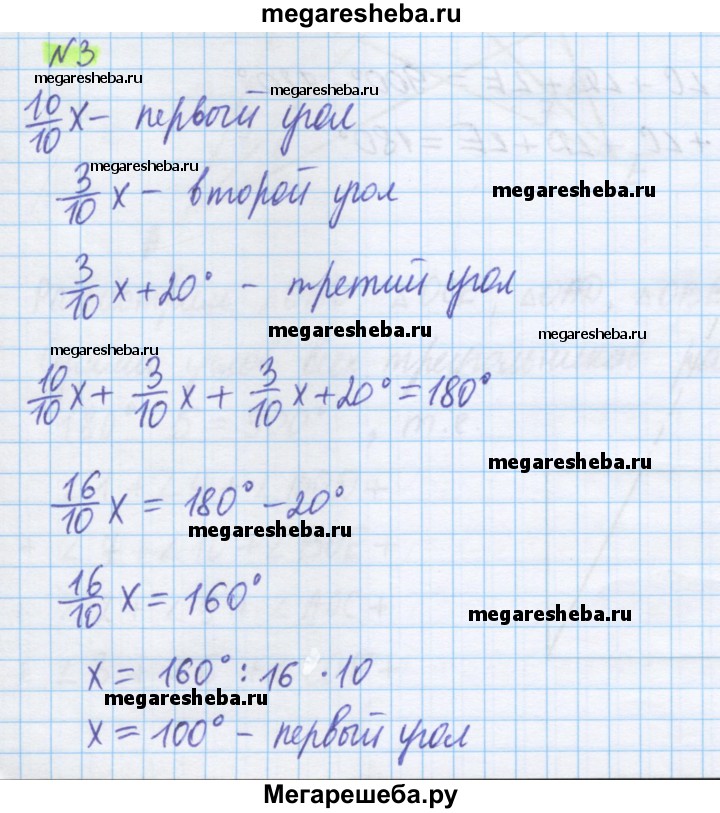 megaresheba.ru
N3
megaresheba.ru
megaresheba.ru
10/10 x – первый угол
megaresheba.ru
3/10 x – второй угол
megaresheba.ru
3/10 x + 20° – третий угол
megaresheba.ru
megaresheba.ru
megaresheba.ru
10/10 x + 3/10 x + 3/10 x + 20° = 180°
megaresheba.ru
16/10 x = 180° – 20°
megaresheba.ru
16/10 x = 160°
megaresheba.ru
x = 160° : 16 · 10
megaresheba.ru
x = 100° – первый угол
Мегарешеба.ру